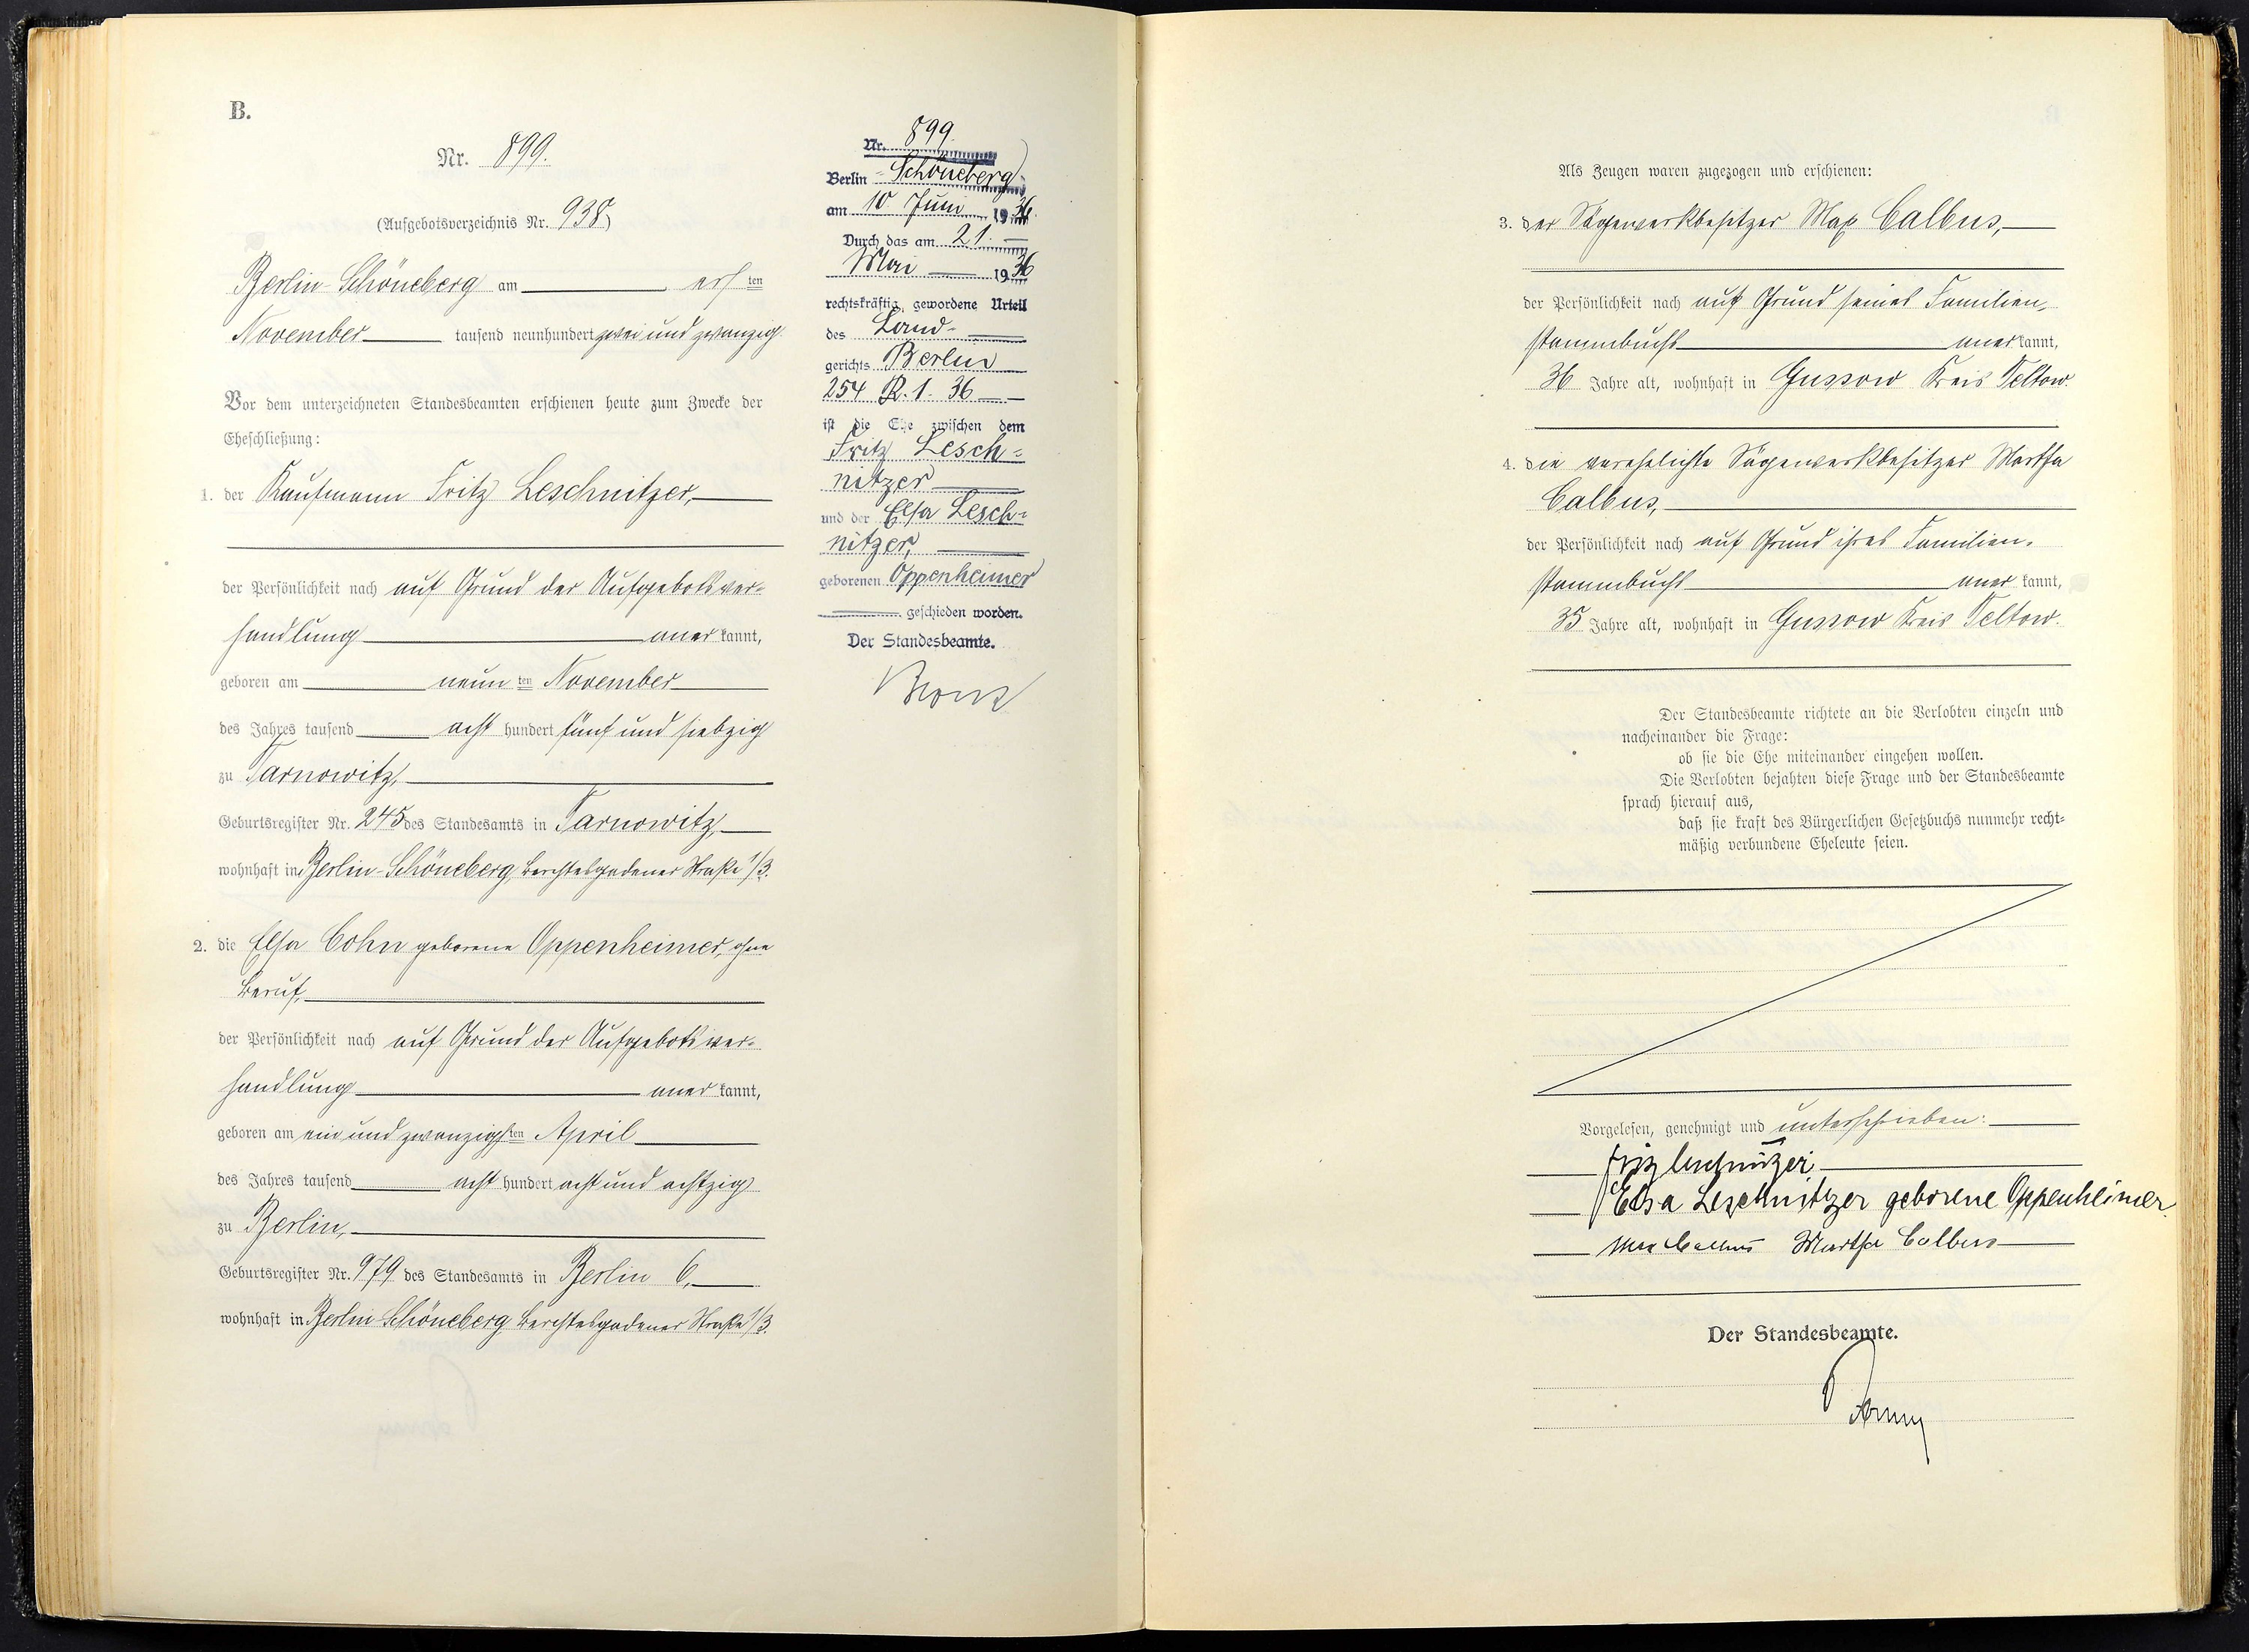 B.
Nr. 899.
(Aufgebotsverzeichnis Nr. 938)
Berlin-Schöneberg am ersten
November tausend neunhundert zwei und zwanzig.
Vor dem unterzeichneten Standesbeamten erschienen heute zum Zwecke der
Eheschließung:
1. der Kaufmann Fritz Leschnitzer,
der Persönlichkeit nach auf Grund der Aufgebotsver-
handlung anerkannt,
geboren am neunten November
des Jahres tausend acht hundert fünf und siebzig
zu Tarnowitz,
Geburtsregister Nr. 245 des Standesamts in Tarnowitz,
wohnhaft in Berlin-Schöneberg, Berchtesgadener Straße 1/3.
2. die Elsa Cohn geborene Oppenheimer, ohne
Beruf,
der Persönlichkeit nach auf Grund der Aufgebotsver-
handlung anerkannt,
geboren am ein und zwanzigsten April
des Jahres tausend acht hundert acht und achtzig
zu Berlin,
Geburtsregister Nr. 979 des Standesamts in Berlin 6,
wohnhaft in Berlin-Schöneberg Berchtesgadener Straße 1/3.
Nr. 899.
Berlin-Schöneberg
am 10. Juni 1936.
Durch das am 21.
Mai 1936
rechtskräftig gewordene Urteil
des Land-
gerichts Berlin
254 R. 1. 36
ist die Ehe zwischen dem
Fritz Lesch-
nitzer
und der Elsa Lesch-
nitzer,
geborenen Oppenheimer
geschieden worden.
Der Standesbeamte.
Als Zeugen waren zugezogen und erschienen:
3. der Sägewerkbesitzer Max Calbus,
der Persönlichkeit nach auf Grund seines Familien-
stammbuchs anerkannt,
36 Jahre alt, wohnhaft in Gussow Kreis Teltow.
4. die verehelichte Sägewerkbesitzer Martha
Calbus,
der Persönlichkeit nach auf Grund ihres Familien-
stammbuchs anerkannt,
35 Jahre alt, wohnhaft in Gussow Kreis Teltow.
Der Standesbeamte richtete an die Verlobten einzeln und
nacheinander die Frage:
ob sie die Ehe miteinander eingehen wollen.
Die Verlobten bejahten diese Frage und der Standesbeamte
sprach hierauf aus,
daß sie kraft des Bürgerlichen Gesetzbuchs nunmehr recht-
mäßig verbundene Eheleute seien.
Vorgelesen, genehmigt und unterschrieben:
Fritz Leschnitzer
Elsa Leschnitzer geborene Oppenheimer
Max Calbus Martha Calbus
Der Standesbeamte.